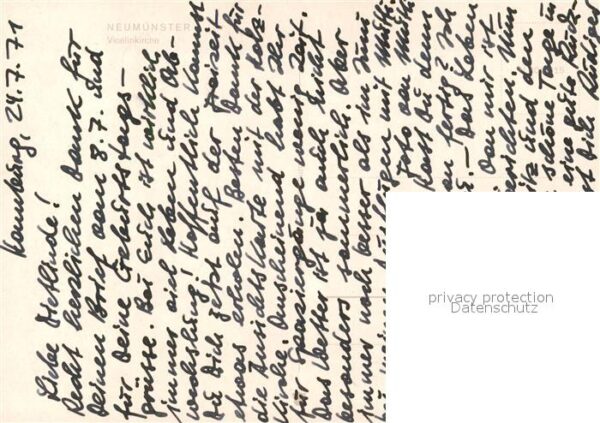 NEUMÜNSTER
Vicelinkirche
Hamburg, 24.7.71
Liebe Dietlinde!
Recht herzlichen Dank für
Deinen Brief vom 8.7. und
für Deine Geburtstags-
grüsse. Bei Euch ist wirklich
immer viel Leben und Ab-
wechslung! Hoffentlich kannst
Du Dich jetzt auf der Freizeit
etwas erholen. Besten Dank für
die Ansichtskarte mit der Holz-
kirche. Anscheinend habt Ihr
für Spaziergänge wenig Zeit.
Das Wetter ist ja auch nicht
besonders sommerlich. Aber
immer noch besser als im Juni
mit
Foto von
Hast Du den
fertig? Ich
- Das Leben
mir ist
berichten. Nun
und den
schöne Tage in
eine gute Rück-
privacy protection
Datenschutz